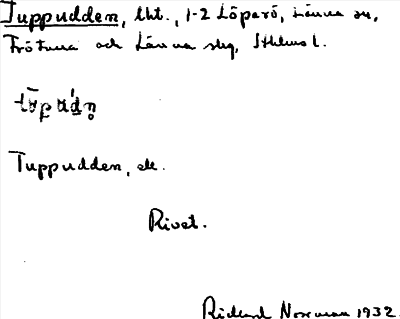 Tuppudden, lht., 1-2 Löparö, Länna sn,
Frötuna och Länna skg, Sthlms l.
Tuppudden, ek.
Rivet.
Rickard Norrman 1932.